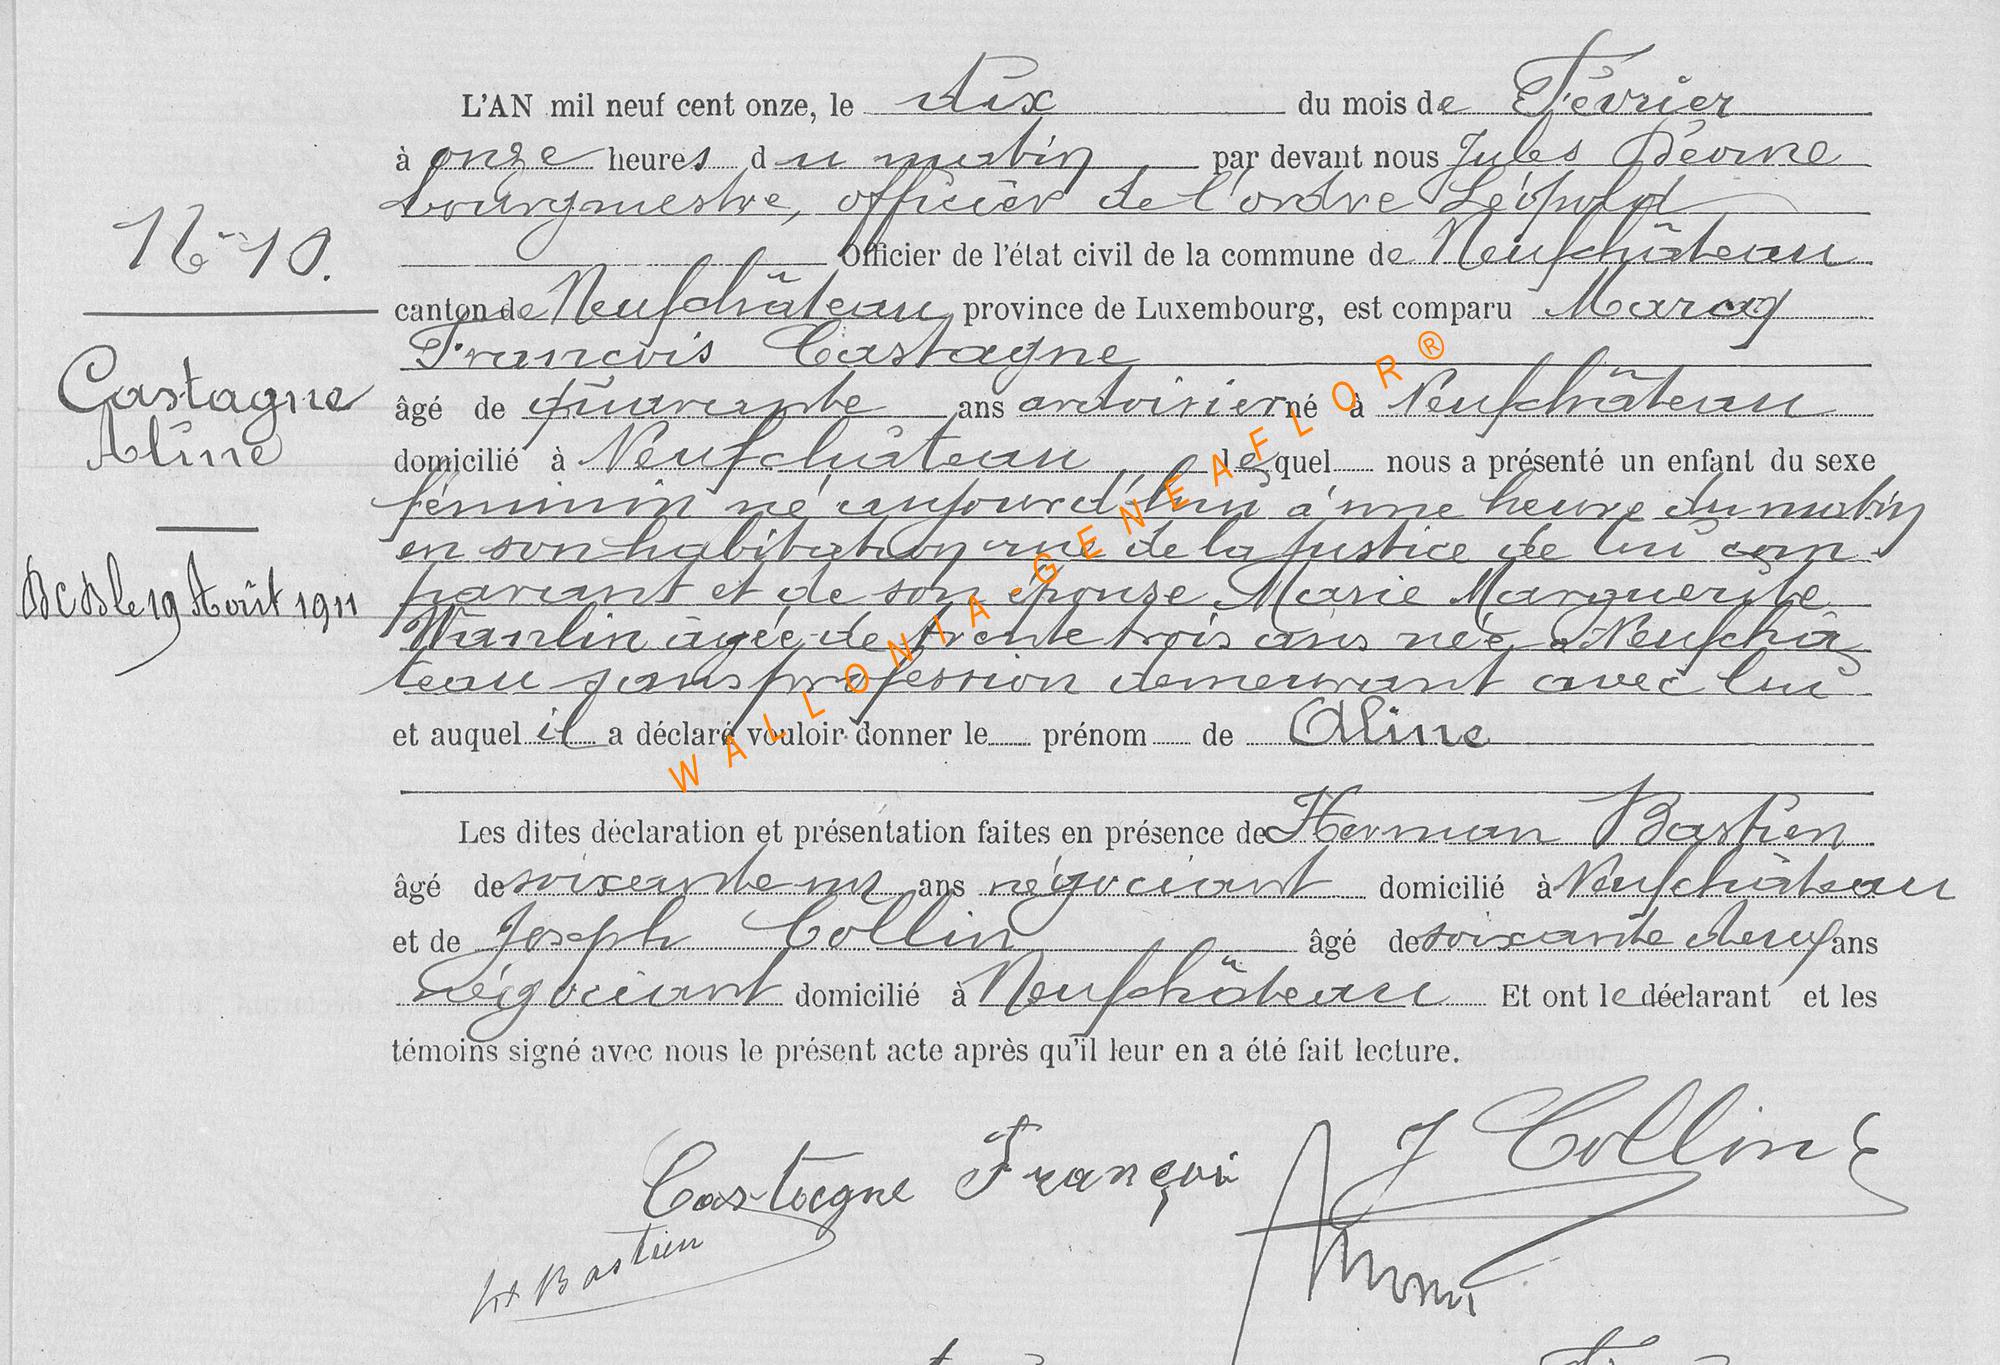 L'AN mil neuf cent onze, le dix du mois de Février
à onze heures du matin par devant nous Jules
bourgmestre, officier de l'ordre Léopold
N° 10.
Officier de l'état civil de la commune de Neufchâteau
canton de Neufchâteau province de Luxembourg, est comparu
François Castagne
Castagne
Aline
âgé de quarante ans ardoisier né à Neufchâteau
domicilié à Neufchâteau lequel nous a présenté un enfant du sexe
féminin né aujourd'hui à une heure du matin
en son habitation rue de la Justice de lui com-
le 19 Août 1911
parant et de son épouse Marie Marguerite
Wanlin âgée de trente trois ans née à Neufchâ
teau sans profession demeurant avec lui
et auquel il a déclaré vouloir donner le prénom de Aline
Les dites déclaration et présentation faites en présence de Herman Bastien
âgé de soixante un ans négociant domicilié à Neufchâteau
et de Joseph Collin âgé de soixante deux ans
négociant domicilié à Neufchâteau Et ont le déclarant et les
témoins signé avec nous le présent acte après qu'il leur en a été fait lecture.
J Collin
Castagne François
H Bastien
WALLONIA-GENEAFLOR®